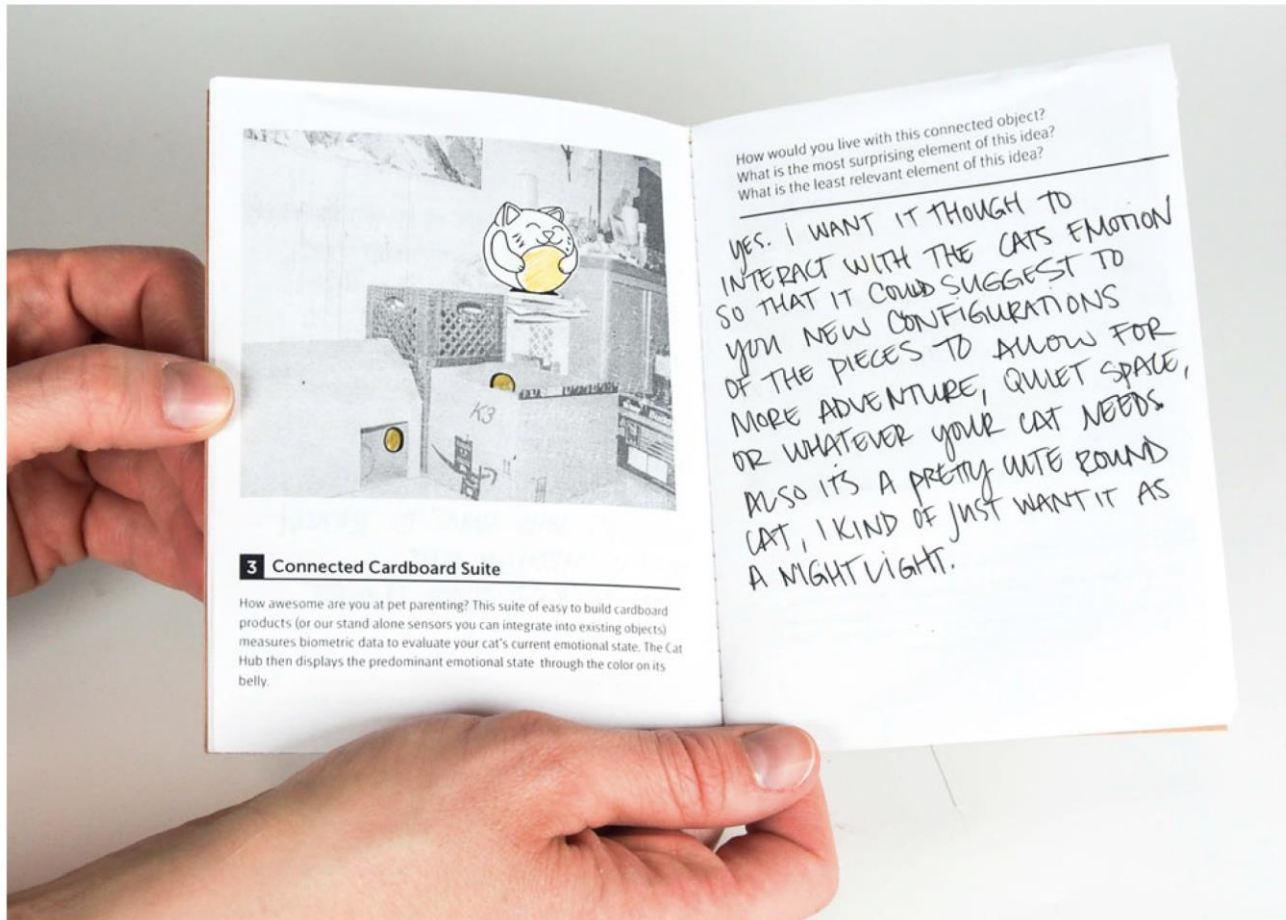 K3
3 Connected Cardboard Suite
How awesome are you at pet parenting? This suite of easy to build cardboard
products (or our stand alone sensors you can integrate into existing objects)
measures biometric data to evaluate your cat's current emotional state. The Cat
Hub then displays the predominant emotional state through the color on its
belly.
How would you live with this connected object?
What is the most surprising element of this idea?
What is the least relevant element of this idea?
YES. I WANT IT THOUGH TO
INTERACT WITH THE CATS EMOTION
SO THAT IT COULD SUGGEST TO
YOU NEW CONFIGURATIONS
OF THE PIECES TO ALLOW FOR
MORE ADVENTURE, QUIET SPACE,
OR WHATEVER YOUR CAT NEEDS.
ALSO IT'S A PRETTY CUTE ROUND
CAT, I KIND OF JUST WANT IT AS
A NIGHT LIGHT.